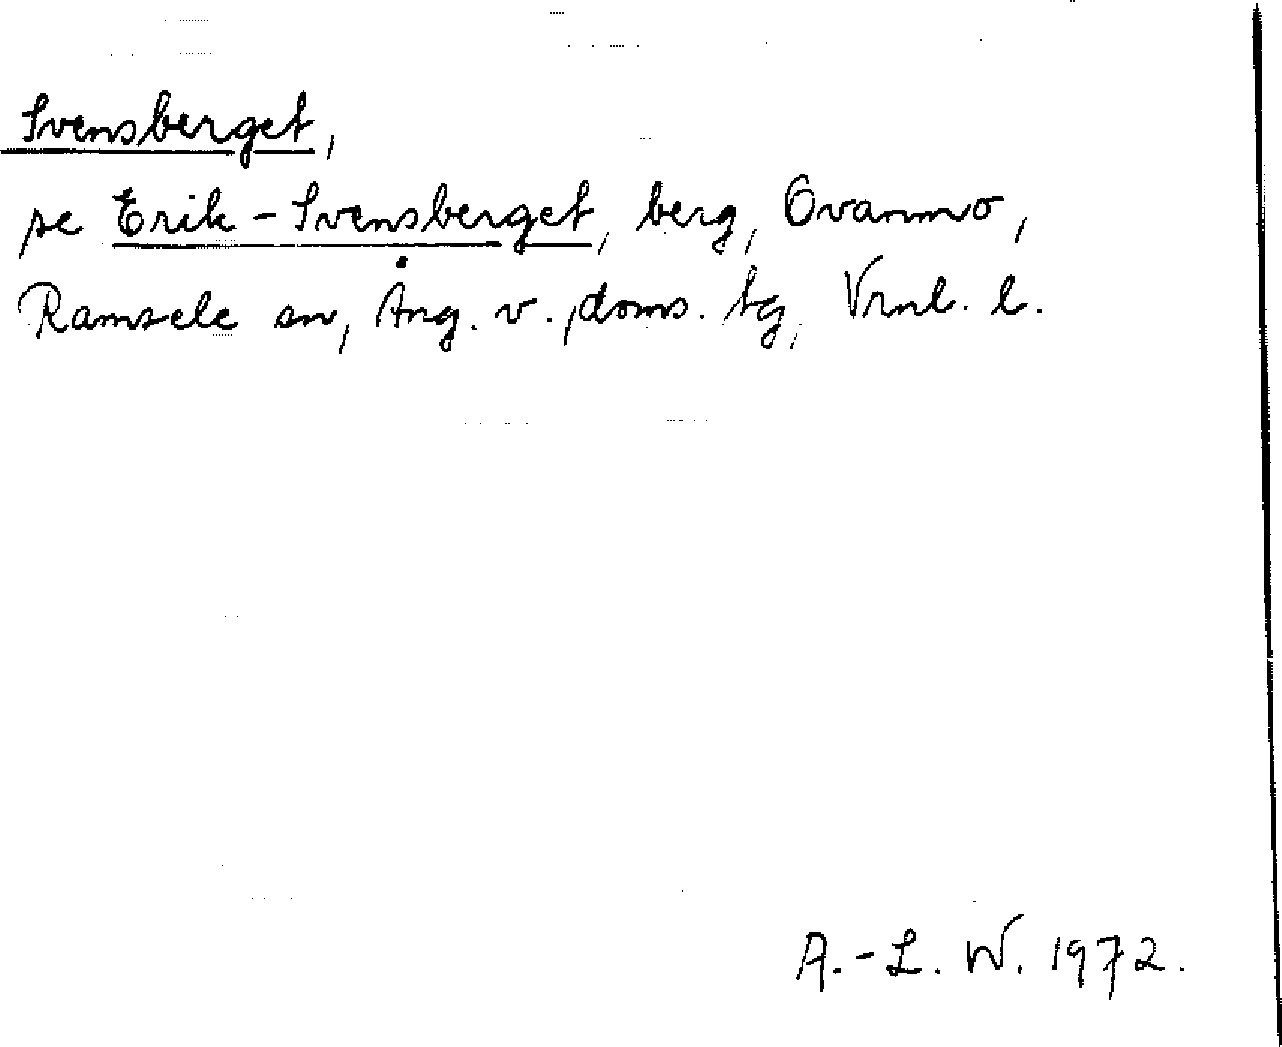 Svensberget,
se Erik-Svensberget, berg, Ovanmo,
Ramsele sn, Ång. v., doms. tg, Vrnl. l.
A.-L. W. 1972.